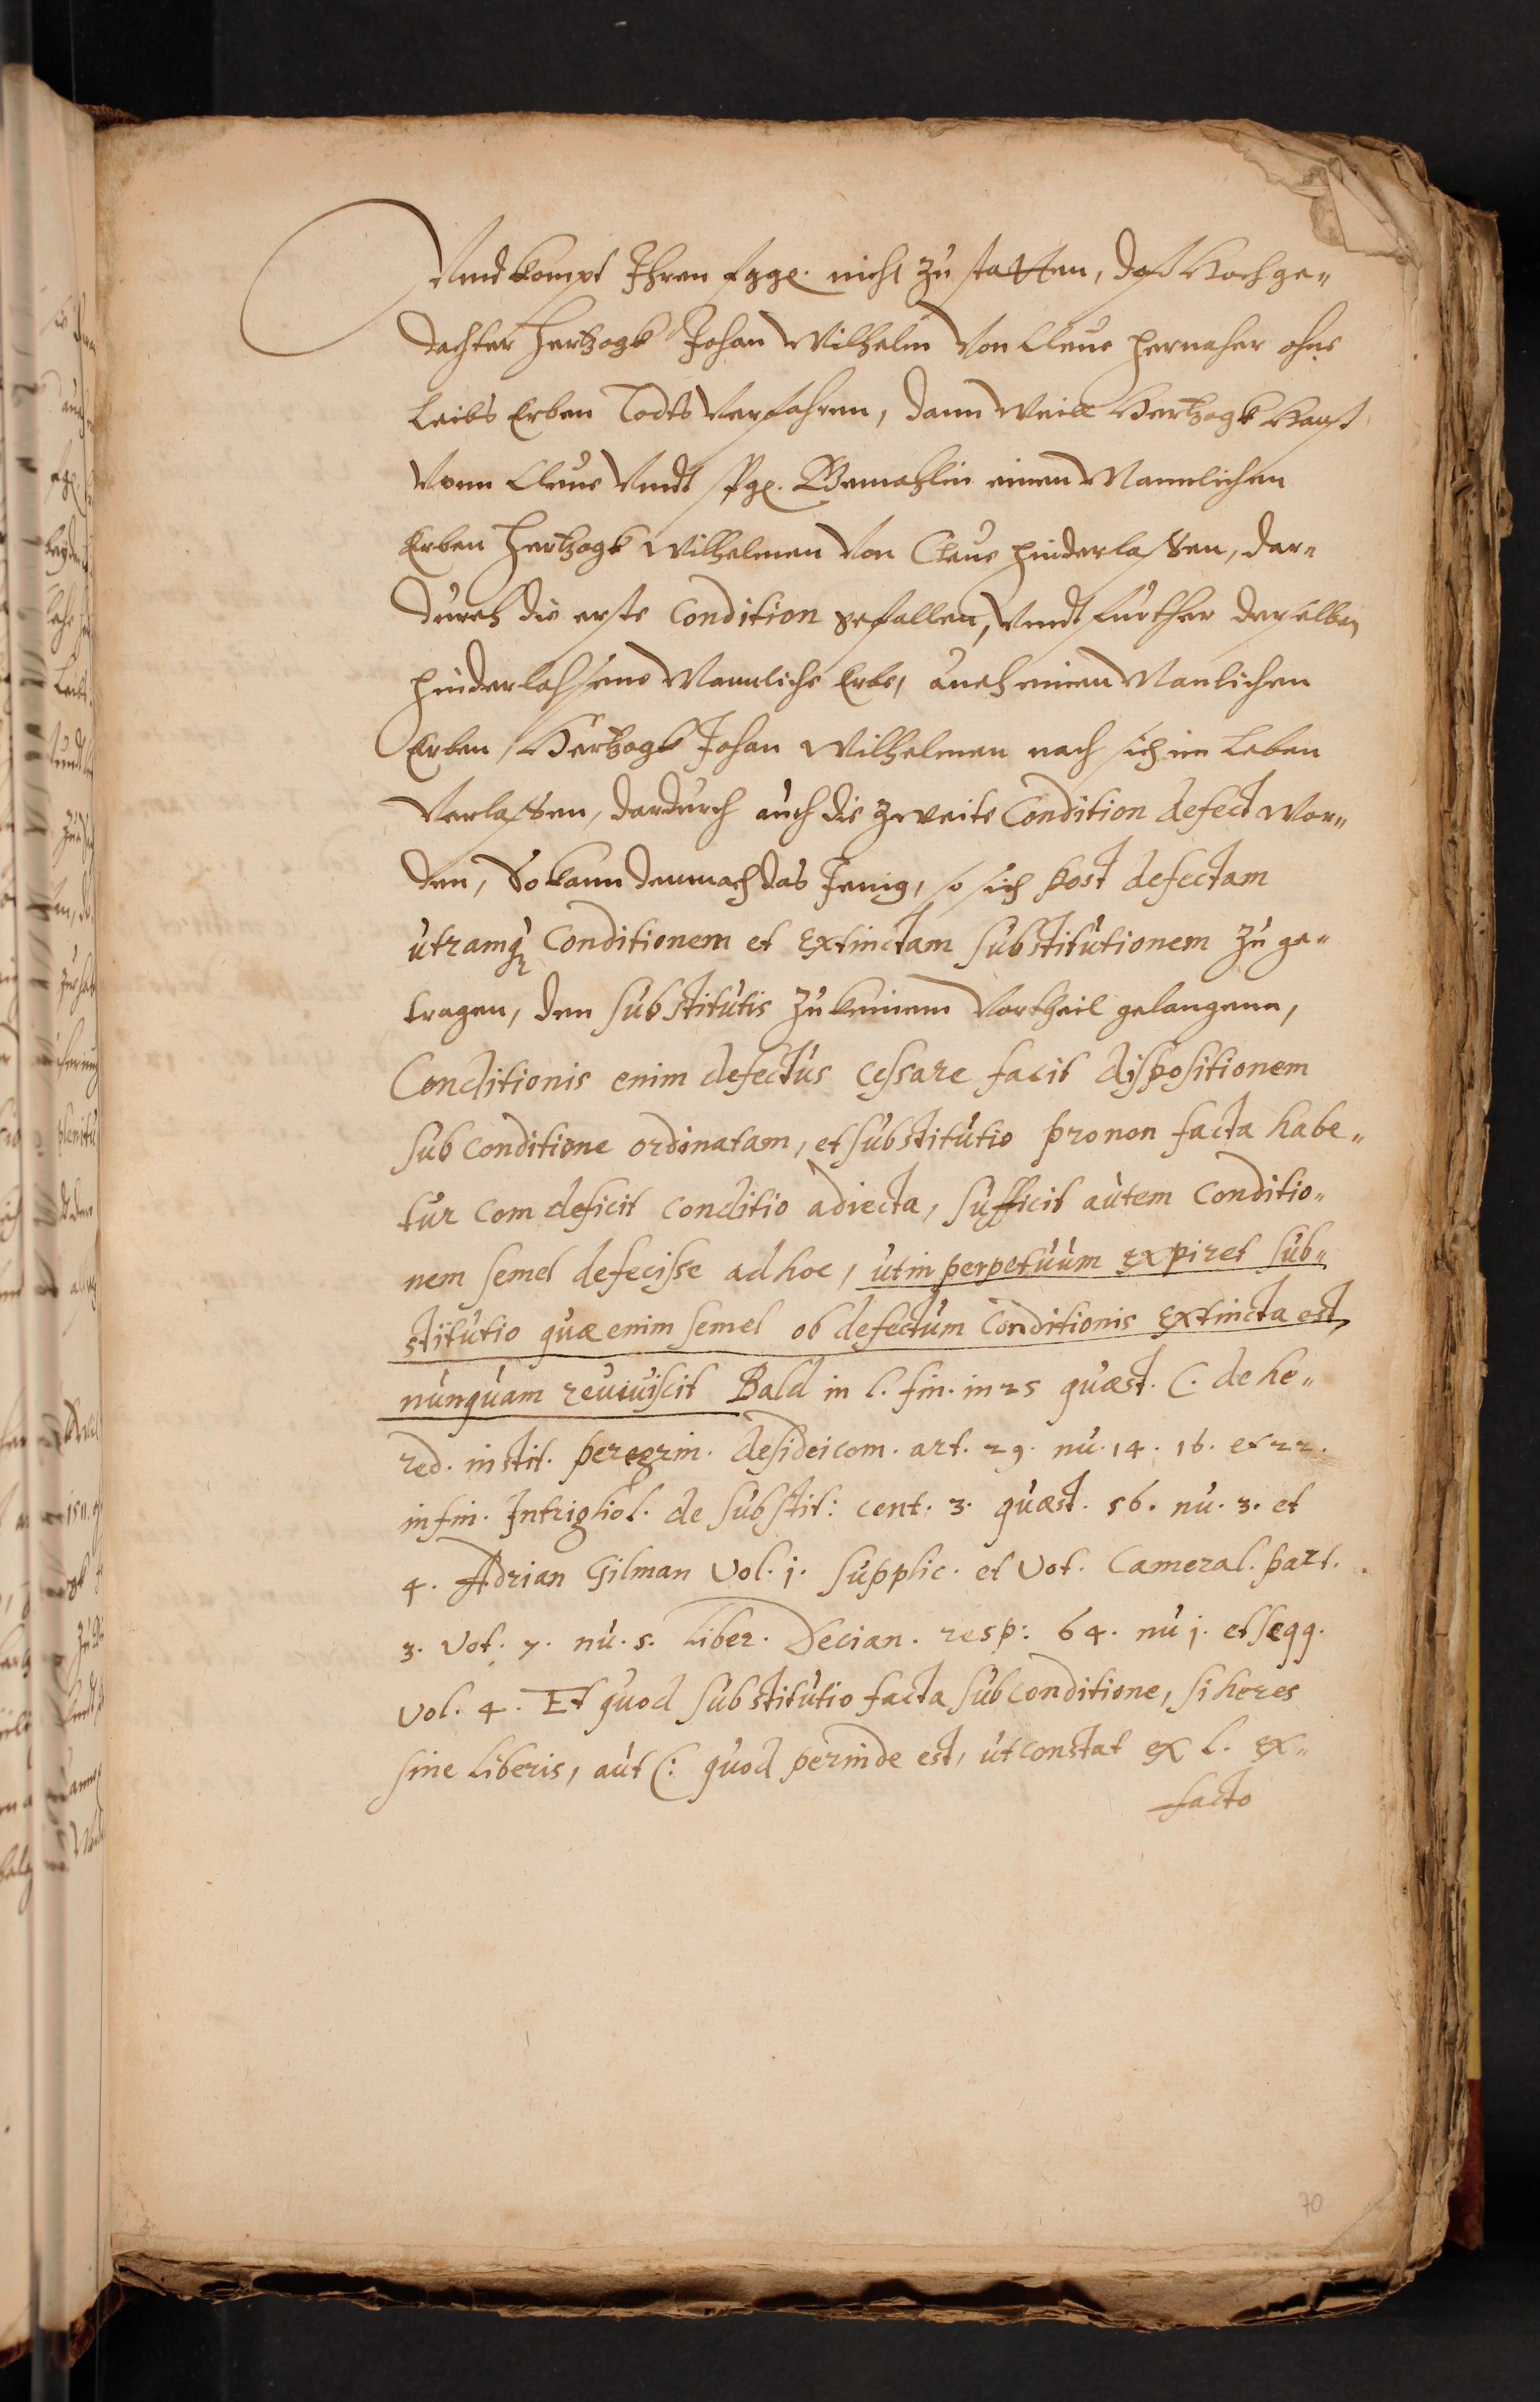 Vnd kompt Ihren fggl. nicht zu statten, daß Hochge„
dachter Hertzogk Johan Wilhelm Von Cleue hernaher ohne
Leibs Erben Todts Verfahren, dann weill Hertzogk Hanß
Vonn Cleue Vndt Gemahlin einen Mannlichen
Erben Hertzogk Wilhelmen Von Cleue hinderlaßen, dar„
durch die erste Condition gefallen, Vndt further derselben
hinderlaßene Mannliche Erbe, auch einen Manlichen
Erben Hertzogk Johan Wilhelmen nach sich im Leben
Verlaßen, dardurch auch die zweite Condition defect wor„
den, So kann demnach das Jenig, so sich post defectam
utramq Conditionem et Extinctam substitutionem zu ge„
tragen, den substitutis zu keinem Vortheil gelangenn,
Conditionis enim defectus cessare facit dispositionem
sub conditione ordinatam, et substitutio pro non facta habe„
tur com deficit conditio adiecta, sufficit autem conditio„
nem semel defecisse ad hoc, ut in perpetuum Expiret sub„
stitutio quæ enim semel ob defectum Conditionis Extincta est,
nunquam reuiuiscit Bald in l. fin. in 25 quæst. C. de he„
red. instit. peregrin. de fideicom. art. 29. nu. 14. 16. et 22.
in fin. Intrigliol. de substit: cent. 3. quæst. 56. nu. 3. et
4. Adrian Gilman Vol. j. supplic. et Vot. Cameral. part.
3. Vot. 7. nu. 5. Tiber. Decian. resp: 64. nu j. et seqq.
Vol. 4. Et quod substitutio facta sub conditione, si heres
sine liberis, aut (: quod perinde est, ut constat ex l. Ex„
facto
70